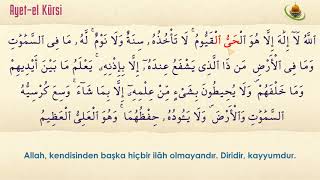 Ayet-el Kürsi
اَللّٰهُ لَٓا اِلٰهَ اِلَّا هُوَ اَلْحَيُّ الْقَيُّومُ لَا تَأْخُذُهُ سِنَةٌ وَلَا نَوْمٌ لَهُ مَا فِى السَّمٰوَاتِ
وَمَا فِى الْاَرْضِ مَنْ ذَا الَّذِى يَشْفَعُ عِنْدَهُ اِلَّا بِاِذْنِهِ يَعْلَمُ مَا بَيْنَ اَيْدِيهِمْ
وَمَا خَلْفَهُمْ وَلَا يُحِيطُونَ بِشَىْءٍ مِنْ عِلْمِهِ اِلَّا بِمَا شَٓاءَ وَسِعَ كُرْسِيُّهُ
السَّمٰوَاتِ وَالْاَرْضَ وَلَا يَؤُدُهُ حِفْظُهُمَا وَهُوَ الْعَلِىُّ الْعَظِيمُ
Allah, kendisinden başka hiçbir ilâh olmayandır. Diridir, kayyumdur.